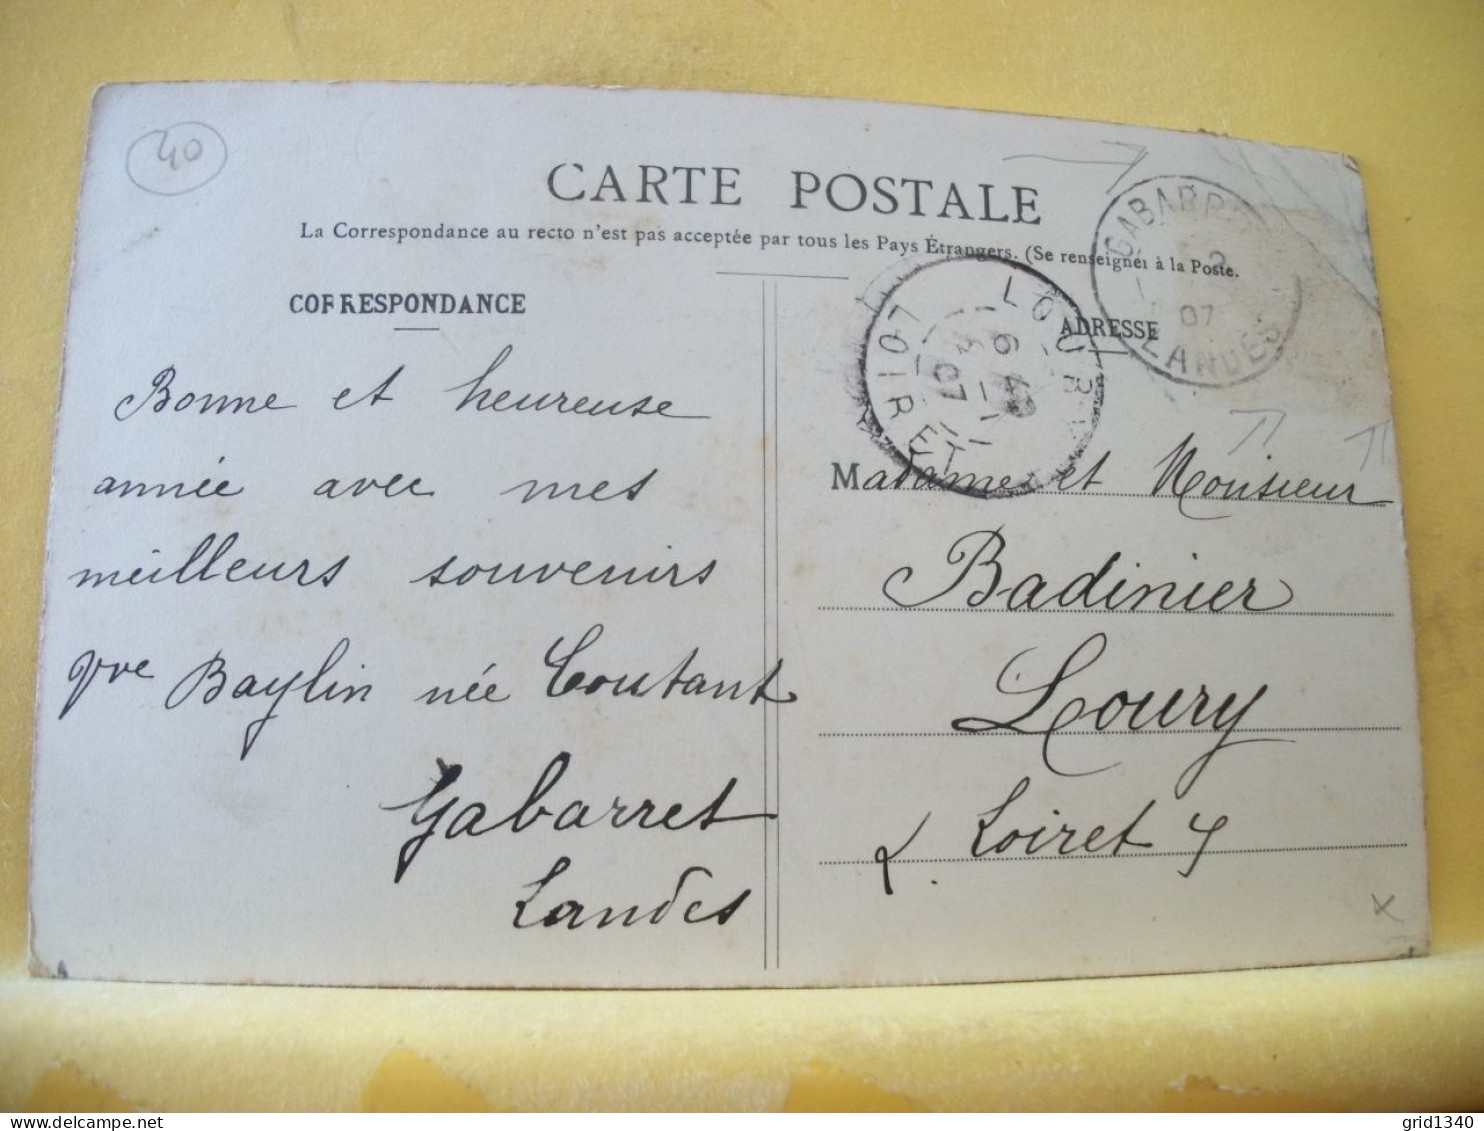 40
CARTE POSTALE
La Correspondance au recto n'est pas acceptée par tous les Pays Étrangers. (Se renseigner à la Poste.
CORRESPONDANCE
ADRESSE
GABARRET
2
07
LANDES
LOURY
6 4
07
LOIRET
Bonne et heureuse
année avec mes
meilleurs souvenirs
Vve Baylin née Coutant
Gabarret
Landes
Madame et Monsieur
Badinier
Loury
Loiret
grid1340